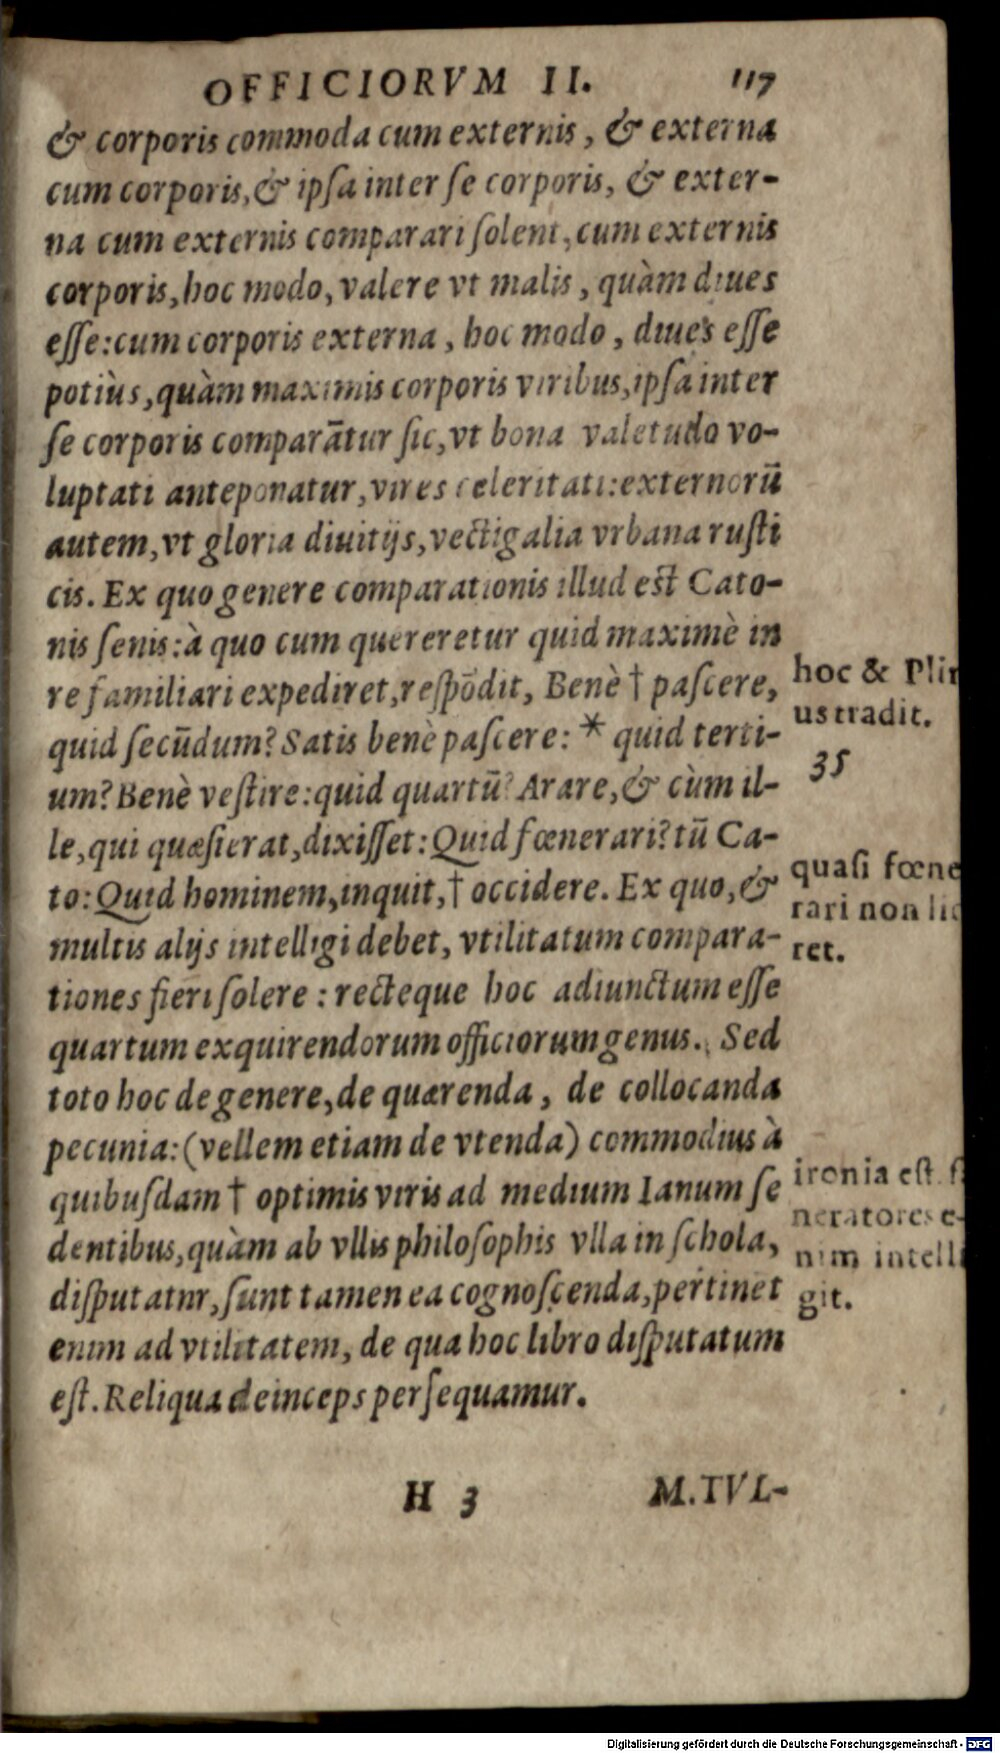 OFFICIORVM II. 117
& corporis commoda cum externis, & externa
cum corporis, & ipſa inter ſe corporis, & exter-
na cum externis comparari ſolent, cum externis
corporis, hoc modo, valere vt malis, quàm diues
eſſe: cum corporis externa, hoc modo, diues eſſe
potiùs, quàm maximis corporis viribus, ipſa inter
ſe corporis comparātur ſic, vt bona valetudo vo-
luptati anteponatur, vires celeritati: externorū
autem, vt gloria diuitijs, vectigalia vrbana ruſti
cis. Ex quo genere comparationis illud eſt Cato-
nis ſenis: à quo cum quereretur quid maximè in
re familiari expediret, reſpōdit, Benè † paſcere,
quid ſecūdum? Satis benè paſcere: * quid terti-
um? Benè veſtire: quid quartū? Arare, & cùm il-
le, qui quæſierat, dixiſſet: Quid fœnerari? tū Ca-
to: Quid hominem, inquit, † occidere. Ex quo, &
multis alijs intelligi debet, vtilitatum compara-
tiones fieri ſolere: recteque hoc adiunctum eſſe
quartum exquirendorum officiorum genus. Sed
toto hoc de genere, de quærenda, de collocanda
pecunia: (vellem etiam de vtenda) commodius à
quibuſdam † optimis viris ad medium Ianum ſe
dentibus, quàm ab vllis philoſophis vlla in ſchola,
diſputatnr, ſunt tamen ea cognoſcenda, pertinet
enim ad vtilitatem, de qua hoc libro diſputatum
eſt. Reliqua deinceps perſequamur.
hoc & Plin
us tradit.
35
quaſi fœne
rari non lic
ret.
ironia eſt. f
neratores e-
nim intelli
git.
H 3 M. TVL-
Digitalisierung gefördert durch die Deutsche Forschungsgemeinschaft - DFG